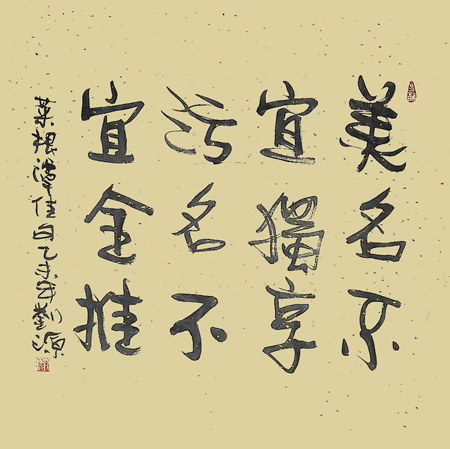 美名不
宜獨享
污名不
宜全推
菜根潭佳句乙未劉源